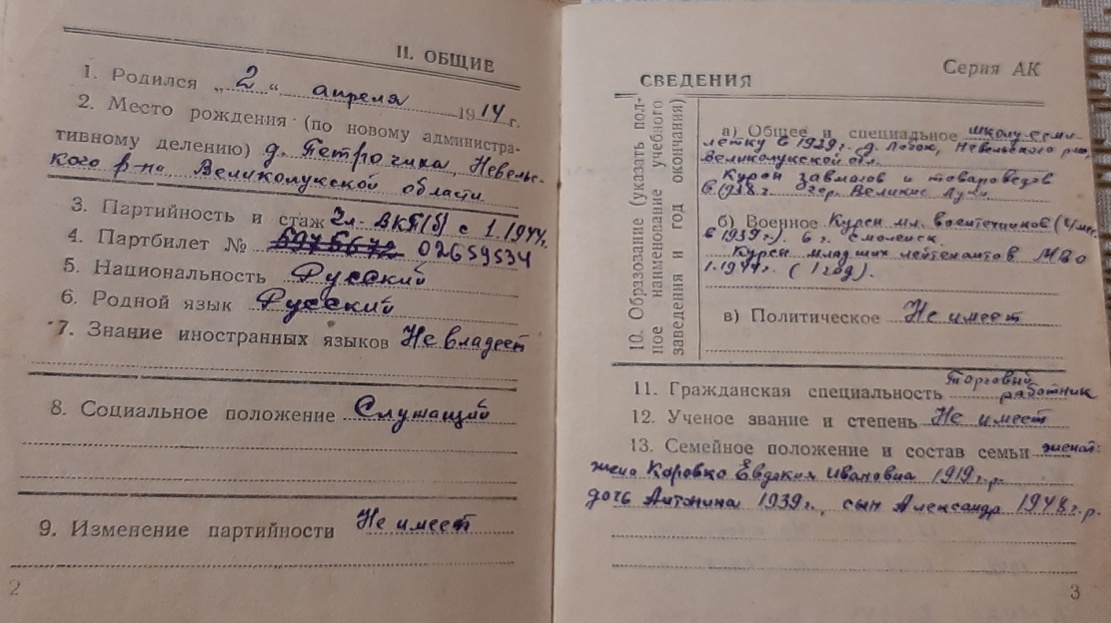 II. ОБЩИЕ
1. Родился „2“ апреля 1914 г.
2. Место рождения (по новому администра-
тивному делению) д. Петрочиха, Невельс-
кого р-на Великолукской области
3. Партийность и стаж Чл. ВКП(б) с 1.1944г.
4. Партбилет № 02659534
5. Национальность Русский
6. Родной язык Русский
7. Знание иностранных языков Не владеет
8. Социальное положение Служащий
9. Изменение партийности Не имеет
2
СВЕДЕНИЯ
Серия АК
10. Образование (указать пол-
ное наименование учебного
заведения и год окончания)
а) Общее и специальное школу семи-
летку в 1929г. д. Лобок, Невельского р-на,
Великолукской обл.
Курсы завмагов и товароведов
в 1938г. гор. Великие Луки.
б) Военное Курсы мл. воентехников
в 1939г.). в г. Смоленск.
Курсы младших лейтенантов МВО
1.1944г. (1 год).
в) Политическое Не имеет
11. Гражданская специальность Торговый
работник
12. Ученое звание и степень Не имеет
13. Семейное положение и состав семьи женат:
жена Коровко Евдокия Ивановна 1919 г.р.
дочь Антонина 1939г., сын Александр 1948г.р.
3